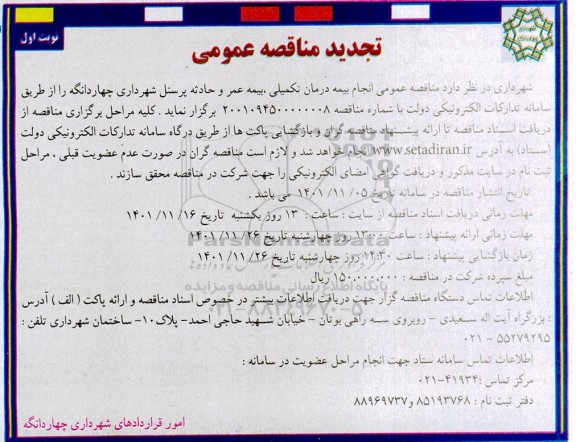 نوبت اول
تجدید مناقصه عمومی
شهرداری در نظر دارد مناقصه عمومی انجام بیمه درمان تکمیلی ،بیمه عمر و حادثه پرسنل شهرداری چهاردانگه را از طریق
سامانه تدارکات الکترونیکی دولت با شماره مناقصه ۲۰۰۱۰۹۴۵۰۰۰۰۰۰۰۸ برگزار نماید . کلیه مراحل برگزاری مناقصه از
دریافت اسناد مناقصه تا ارائه پیشنهاد مناقصه گران و بازگشایی پاکت ها از طریق درگاه سامانه تدارکات الکترونیکی دولت
(ستاد) به آدرس www.setadiran.ir انجام خواهد شد و لازم است مناقصه گران در صورت عدم عضویت قبلی ، مراحل
ثبت نام در سایت مذکور و دریافت گواهی امضای الکترونیکی را جهت شرکت در مناقصه محقق سازند .
تاریخ انتشار مناقصه در سامانه تاریخ ۰۵ /۱۱ /۱۴۰۱ می باشد .
مهلت زمانی دریافت اسناد مناقصه از سایت : ساعت : ۱۳ روز یکشنبه تاریخ ۱۶ /۱۱ /۱۴۰۱
مهلت زمانی ارائه پیشنهاد : ساعت ۱۳:۰۰ روز چهارشنبه تاریخ ۲۶ /۱۱ /۱۴۰۱
زمان بازگشایی پیشنهاد : ساعت ۱۴:۳۰ روز چهارشنبه تاریخ ۲۶ /۱۱ /۱۴۰۱
مبلغ سپرده شرکت در مناقصه : ریال
اطلاعات تماس دستگاه مناقصه گزار جهت دریافت اطلاعات بیشتر در خصوص اسناد مناقصه و ارائه پاکت ( الف ) آدرس
: بزرگراه آیت اله سعیدی - روبروی سه راهی بوتان - خیابان شهید حاجی احمد- پلاک۱۰- ساختمان شهرداری تلفن :
۵۵۲۷۹۲۹۵ - ۰۲۱
اطلاعات تماس سامانه ستاد جهت انجام مراحل عضویت در سامانه :
مرکز تماس :۴۱۹۳۴-۰۲۱
دفتر ثبت نام : ۸۵۱۹۳۷۶۸ و۸۸۹۶۹۷۳۷
امور قراردادهای شهرداری چهاردانگه
ParsNamadData
پایگاه اطلاع رسانی مناقصه و مزایده
۰۲۱-۸۸۳۴۹۶۷۰-۵